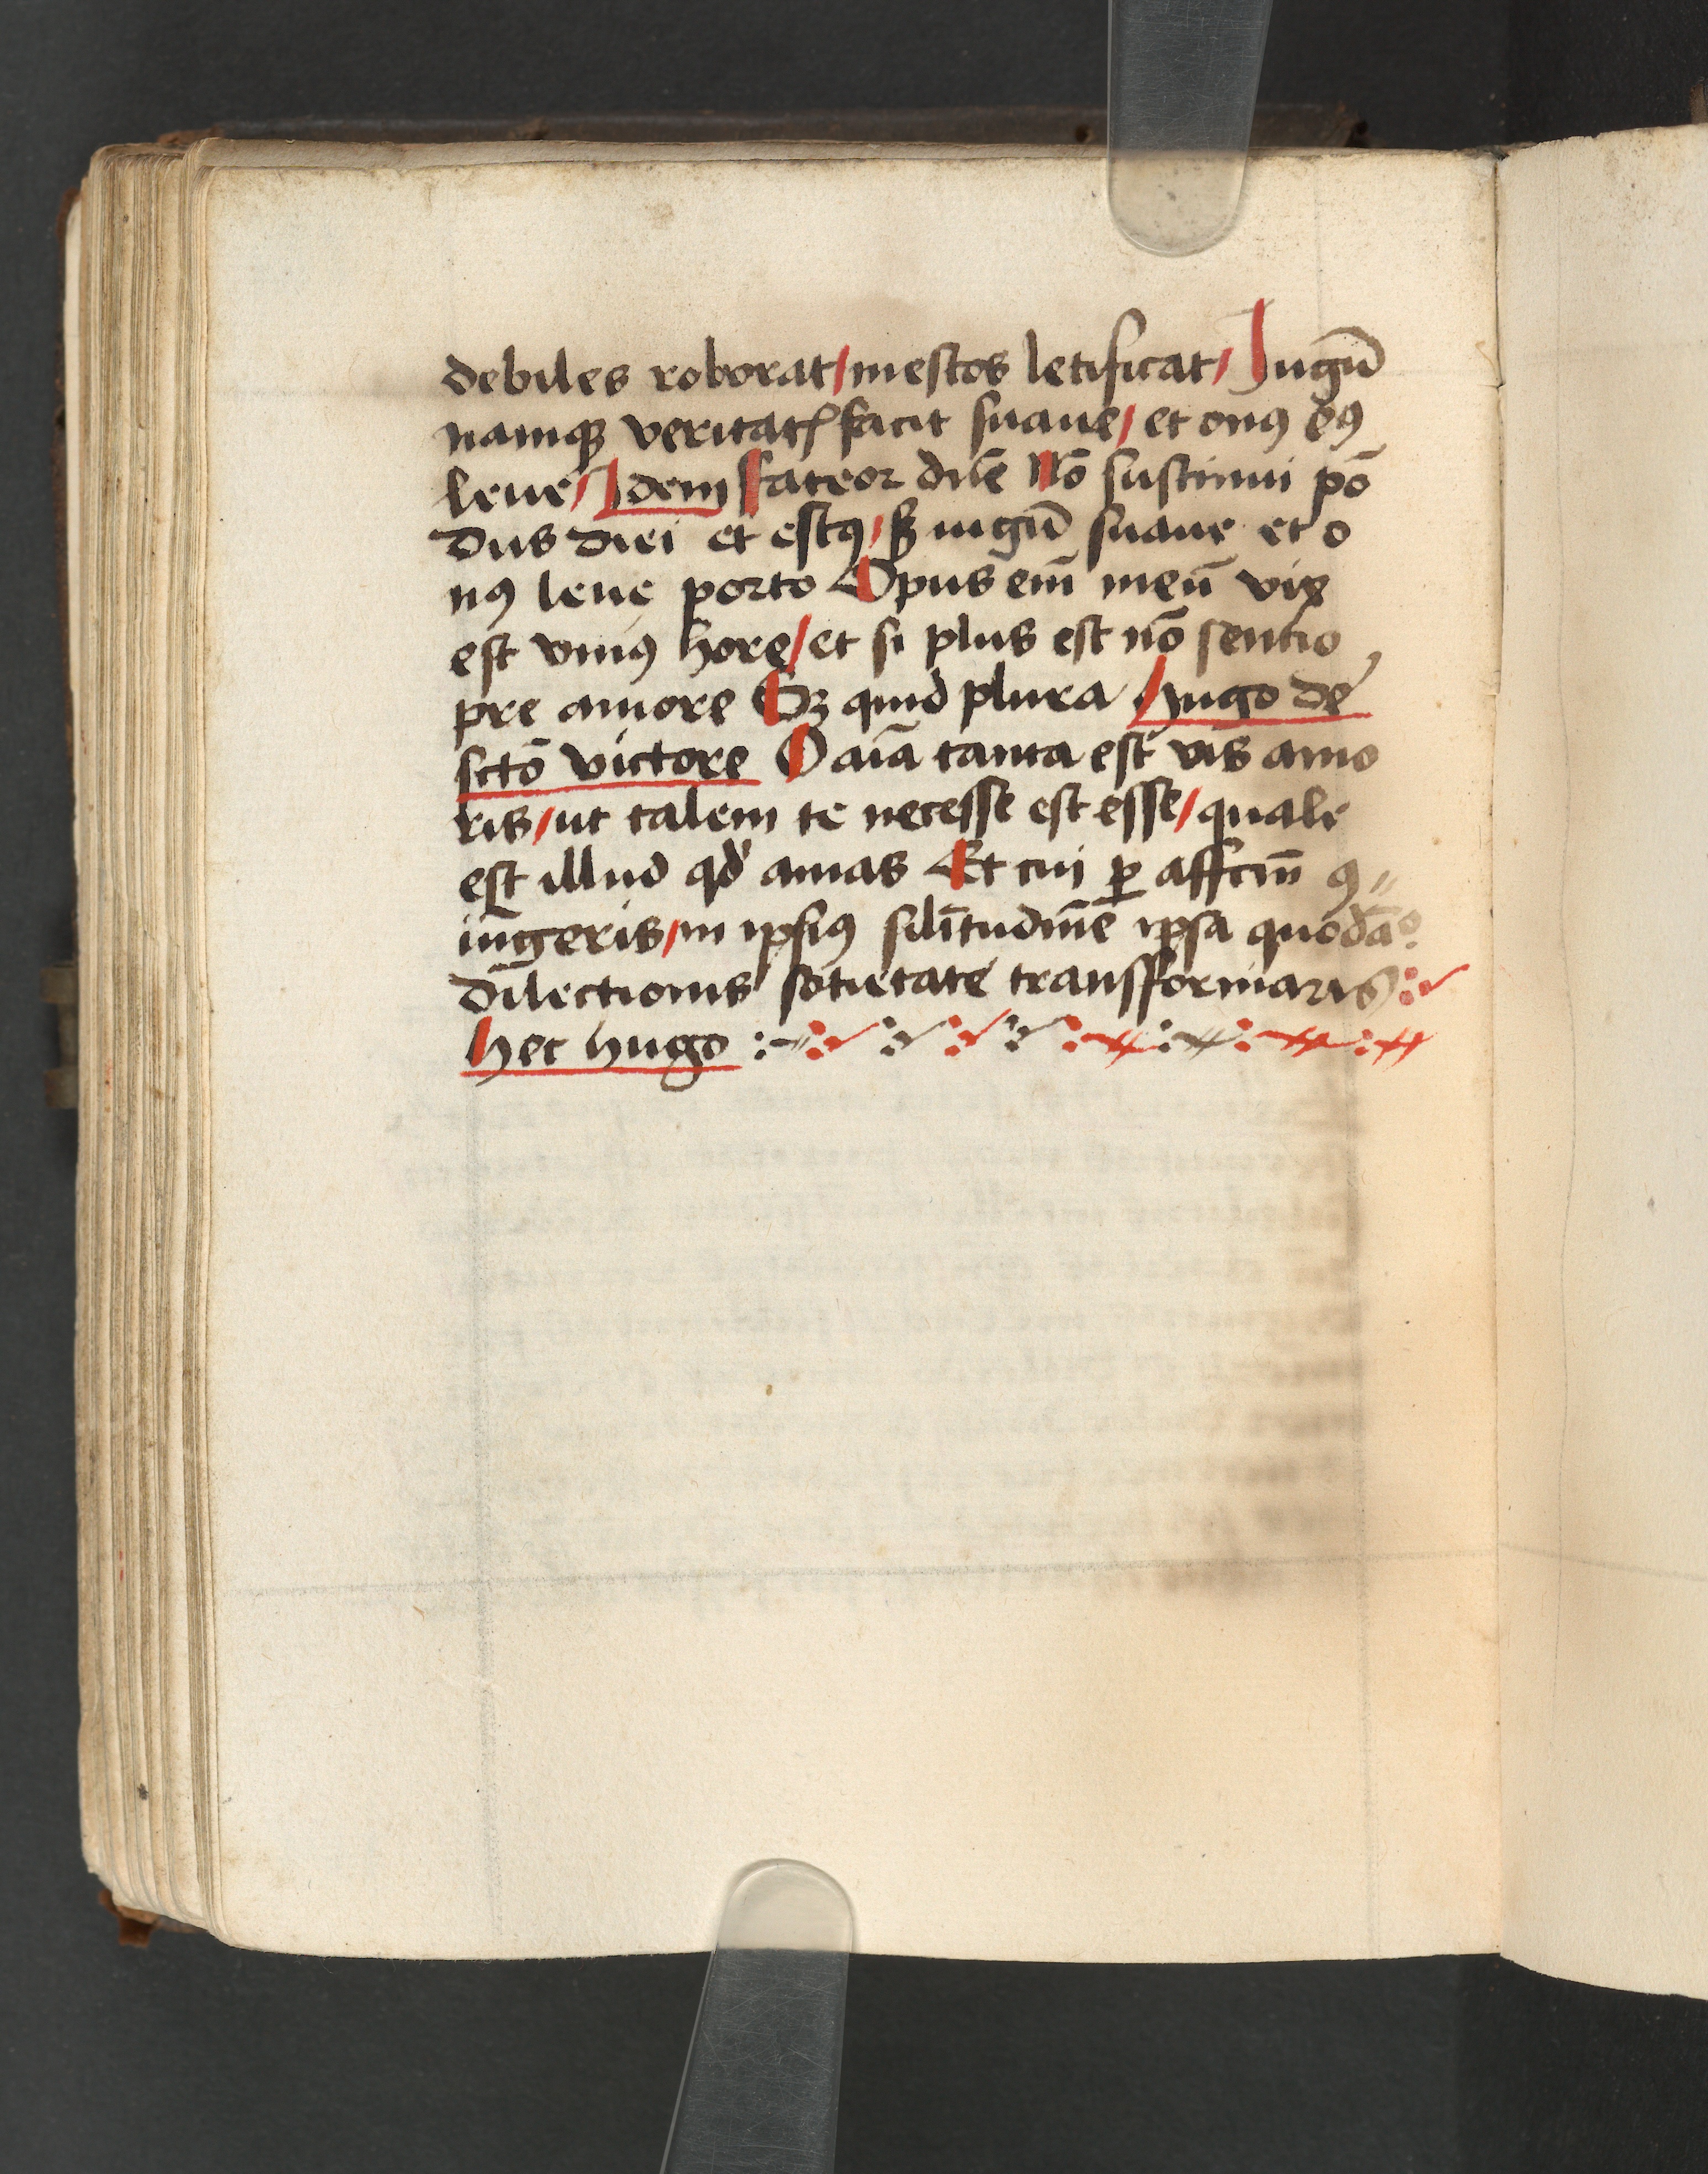 debiles roborat/ mestos letificat/ Jugū
namqꝫ veritatꝭ facit suaue/ et onꝰ eiꝰ
leue/ Idem fateor dil̄e Nō sustinui pō
dus diei et estꝰ/ sꝫ iugū suaue et o
nꝰ leue porto Opus em̄ meū vix
est vniꝰ hore/ et si plus est nō sentio
pre amore Sꝫ quid plura Hugo de
sctō victore O aīa tanta est vis amo
ris/ ut talem te necesse est esse/ quale
est illud qd̕ amas Et cui ꝑ affcm̄ ꝯ〃
iūgeris/ in ipsiꝰ silītudinē ipsa quodā
dīlectionis sotietate transformaris
hec hugo